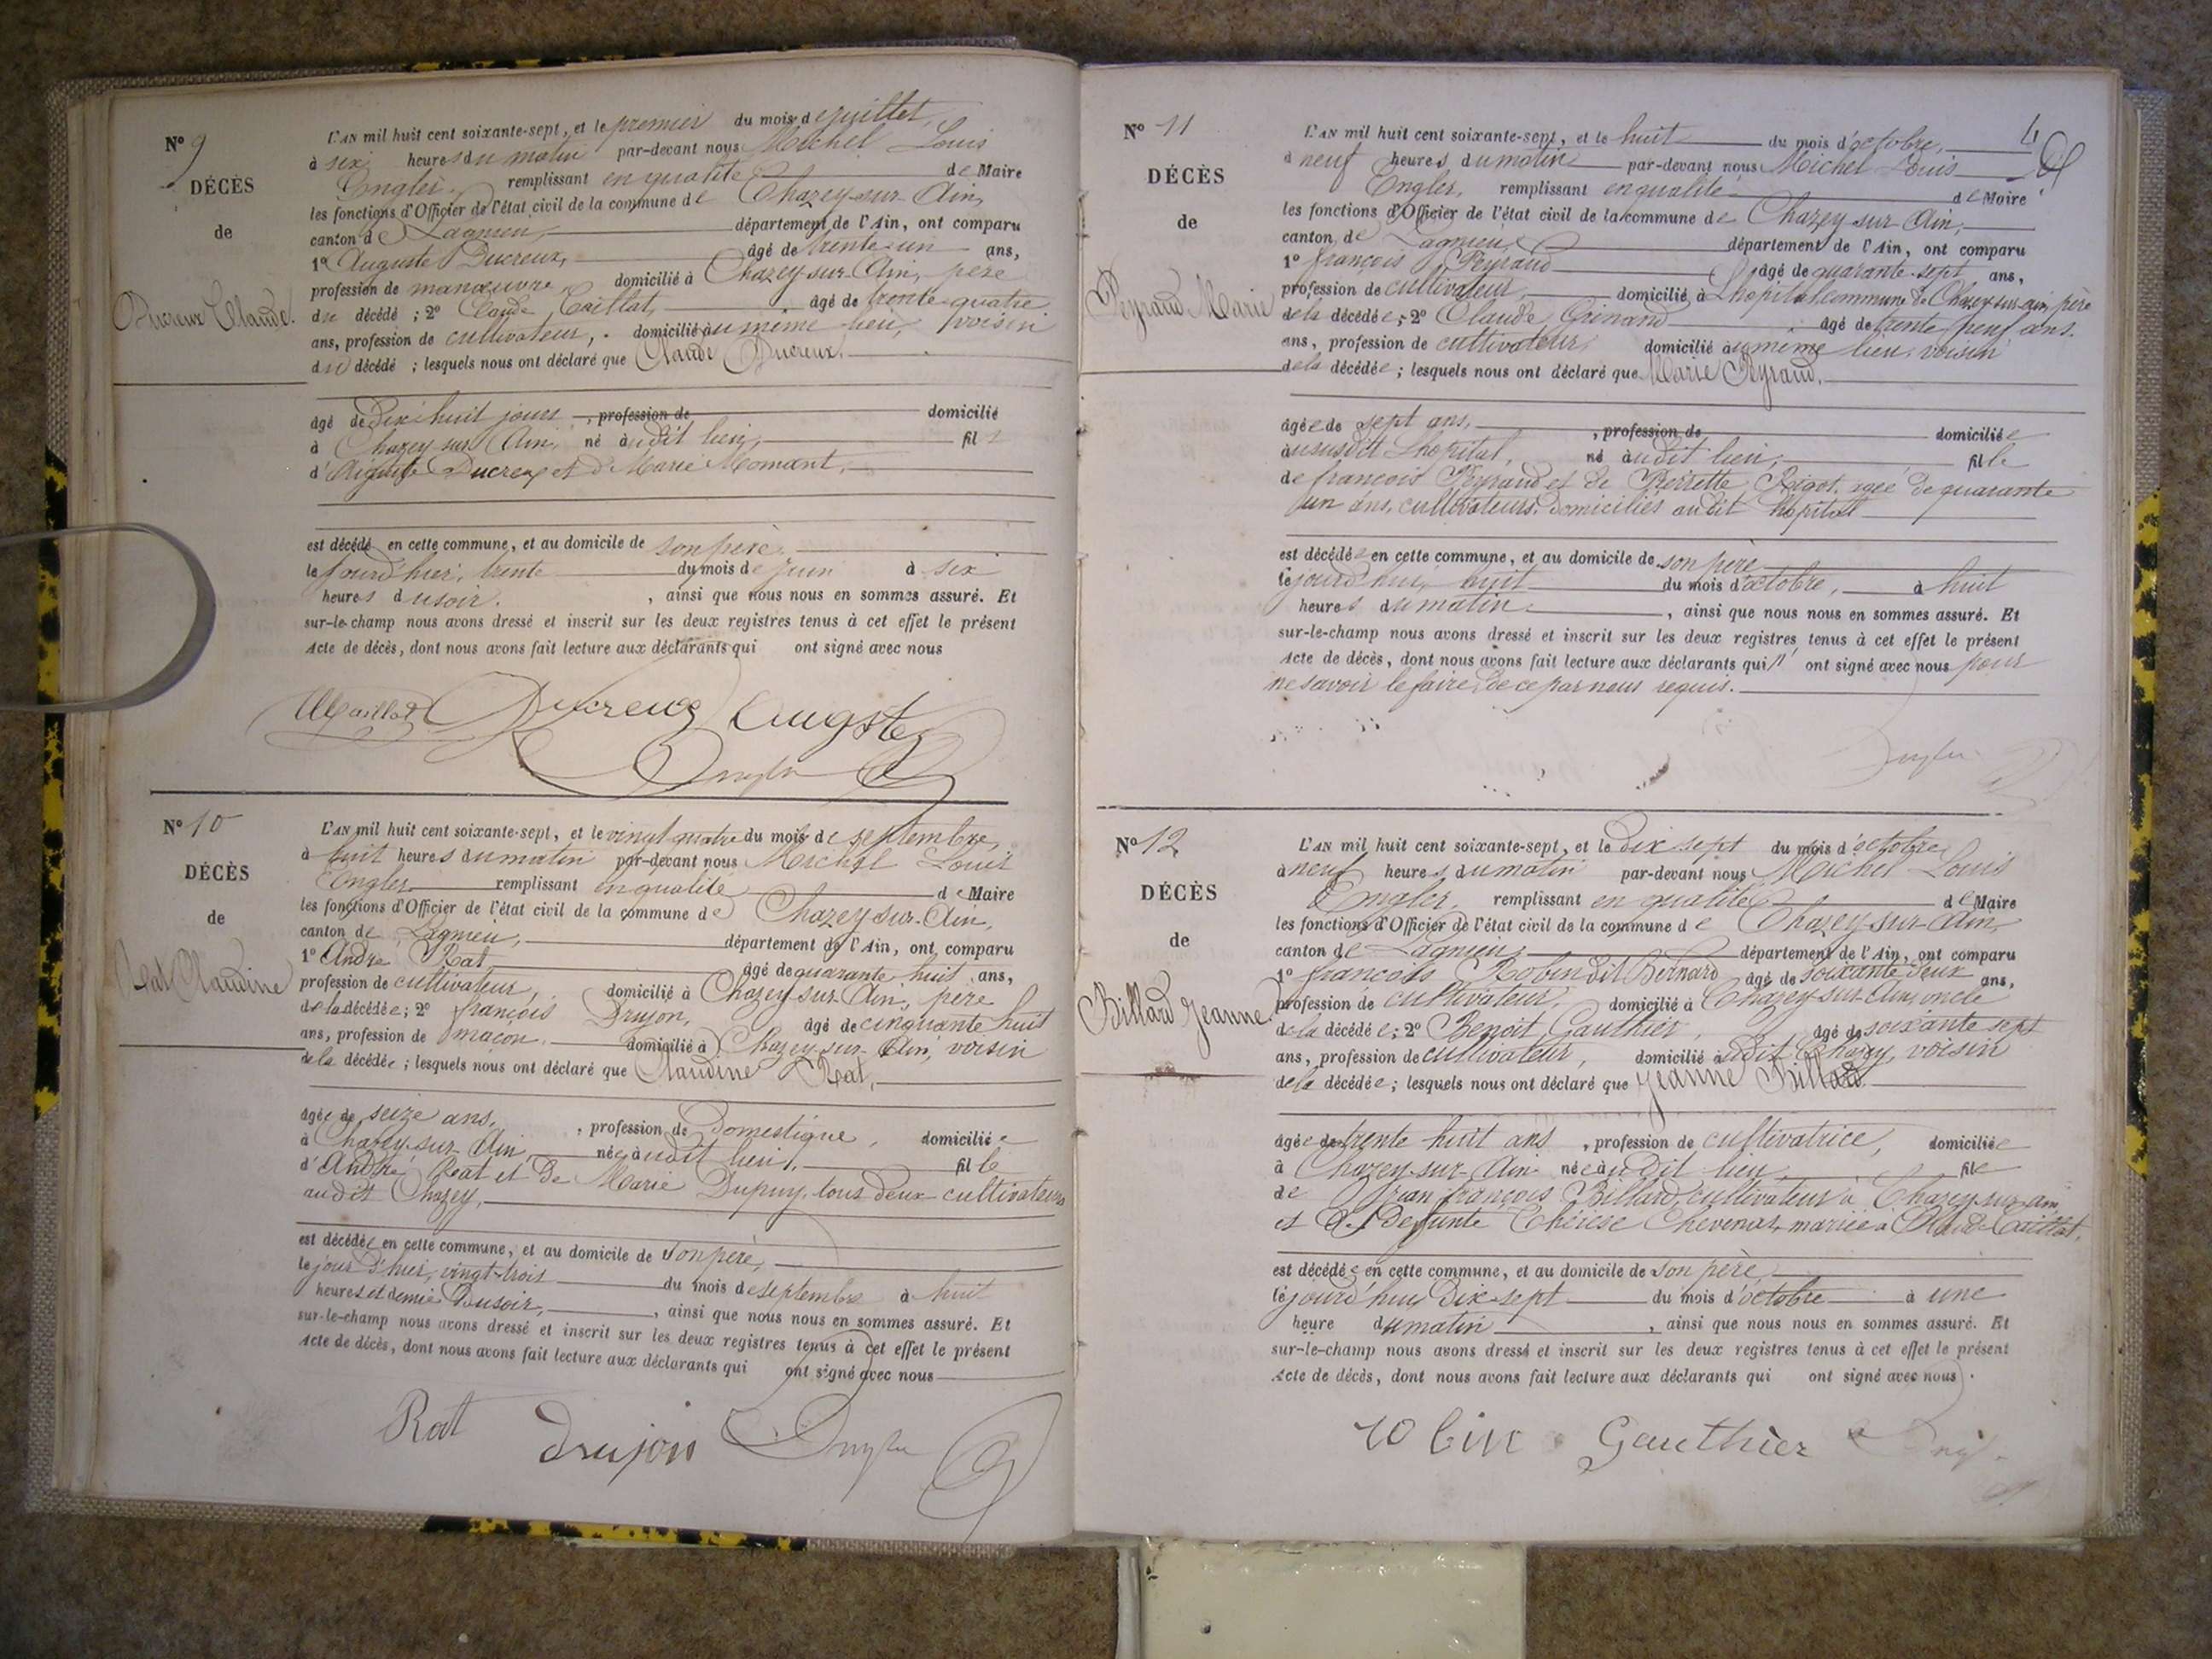 N° 9
DÉCÈS
de
Ducreux Claude.
L'AN mil huit cent soixante-sept, et le premier du mois de juillet,
à six heures du matin par-devant nous Michel Louis
Engler, remplissant en qualité de Maire
les fonctions d'Officier de l'état civil de la commune de Chazey-sur-Ain,
canton de Lagnieu, département de l'Ain, ont comparu
1° Auguste Ducreux, âgé de trente-un ans,
profession de manœuvre, domicilié à Chazey-sur-Ain, père
du décédé ; 2° Claude Caillat, âgé de trente-quatre
ans, profession de cultivateur, domicilié au même lieu, voisin
du décédé ; lesquels nous ont déclaré que Claude Ducreux,
âgé de dix huit jours, profession de domicilié
à Chazey sur Ain, né audit lieu, fils
d'Auguste Ducreux et de Marie Momant,
est décédé en cette commune, et au domicile de son père,
le jourd'hier, trente du mois de juin à six
heures du soir. , ainsi que nous nous en sommes assuré. Et
sur-le-champ nous avons dressé et inscrit sur les deux registres tenus à cet effet le présent
Acte de décès, dont nous avons fait lecture aux déclarants qui ont signé avec nous
Ducreux Augste
Engler
N° 10
DÉCÈS
de
Rat Claudine
L'AN mil huit cent soixante-sept, et le vingt quatre du mois de septembre,
à huit heures du matin par-devant nous Michel Louis
Engler remplissant en qualité de Maire
les fonctions d'Officier de l'état civil de la commune de Chazey-sur-Ain,
canton de Lagnieu, département de l'Ain, ont comparu
1° André Rat, âgé de quarante huit ans,
profession de cultivateur, domicilié à Chazey-sur-Ain, père
de la décédée ; 2° françois Drujon, âgé de cinquante huit
ans, profession de maçon, domicilié à Chazey-sur-Ain, voisin
de la décédée ; lesquels nous ont déclaré que Claudine Rat,
âgée de seize ans, , profession de Domestique, domiciliée
à Chazey-sur-Ain, née audit lieu, fille
d'André Rat et de Marie Dupuy, tous deux cultivateurs
audit Chazey,
est décédée en cette commune, et au domicile de son père,
le jour d'hier, vingt-trois du mois de septembre à huit
heures et demie du soir, , ainsi que nous nous en sommes assuré. Et
sur-le-champ nous avons dressé et inscrit sur les deux registres tenus à cet effet le présent
Acte de décès, dont nous avons fait lecture aux déclarants qui ont signé avec nous
Rat drujon Engler
4
N° 11
DÉCÈS
de
Peyraud Marie
L'AN mil huit cent soixante-sept, et le huit du mois d'octobre,
à neuf heures du matin par-devant nous Michel Louis
Engler, remplissant en qualité de Maire
les fonctions d'Officier de l'état civil de la commune de Chazey sur Ain,
canton de Lagnieu, département de l'Ain, ont comparu
1° françois Peyraud âgé de quarante-sept ans,
profession de cultivateur, domicilié à Lhopital commune de Chazey-sur-ain, père
de la décédée ; 2° Claude Grinand âgé de trente neuf ans.
ans, profession de cultivateur, domicilié au même lieu, voisin
de la décédée ; lesquels nous ont déclaré que Marie Peyraud,
âgée de sept ans, , profession de domiciliée
au susdit Lhopital, né audit lieu, fille
de françois Peyraud et de Pierrette Rigot, agée de quarante
un ans, cultivateurs, domiciliés audit hopital
est décédée en cette commune, et au domicile de son père
le jourd'hui, huit du mois d'octobre, à huit
heures du matin , ainsi que nous nous en sommes assuré. Et
sur-le-champ nous avons dressé et inscrit sur les deux registres tenus à cet effet le présent
Acte de décès, dont nous avons fait lecture aux déclarants qui n'ont signé avec nous pour
ne savoir le faire, de ce par nous requis.
Engler
N° 12
DÉCÈS
de
Billard Jeanne
L'AN mil huit cent soixante-sept, et le dix sept du mois d'octobre,
à neuf heures du matin par-devant nous Michel Louis
Engler, remplissant en qualité de Maire
les fonctions d'Officier de l'état civil de la commune de Chazey-sur-Ain,
canton de Lagnieu, département de l'Ain, ont comparu
1° françois Robin dit Bernard âgé de soixante deux ans,
profession de cultivateur, domicilié à Chazey-sur-Ain, oncle
de la décédée ; 2° Benoit Gauthier, âgé de soixante sept
ans, profession de cultivateur, domicilié audit Chazey, voisin
de la décédée ; lesquels nous ont déclaré que Jeanne Billard
âgée de trente huit ans , profession de cultivatrice, domiciliée
à Chazey-sur-Ain née audit lieu, fille
de Jean françois Billard, cultivateur à Chazey-sur-ain
et de défunte Thérèse Chevenat, mariée à Claude Caillat,
est décédée en cette commune, et au domicile de son père,
le jourd'hui dix-sept du mois d'octobre à une
heure du matin , ainsi que nous nous en sommes assuré. Et
sur-le-champ nous avons dressé et inscrit sur les deux registres tenus à cet effet le présent
Acte de décès, dont nous avons fait lecture aux déclarants qui ont signé avec nous.
Robin Gauthier